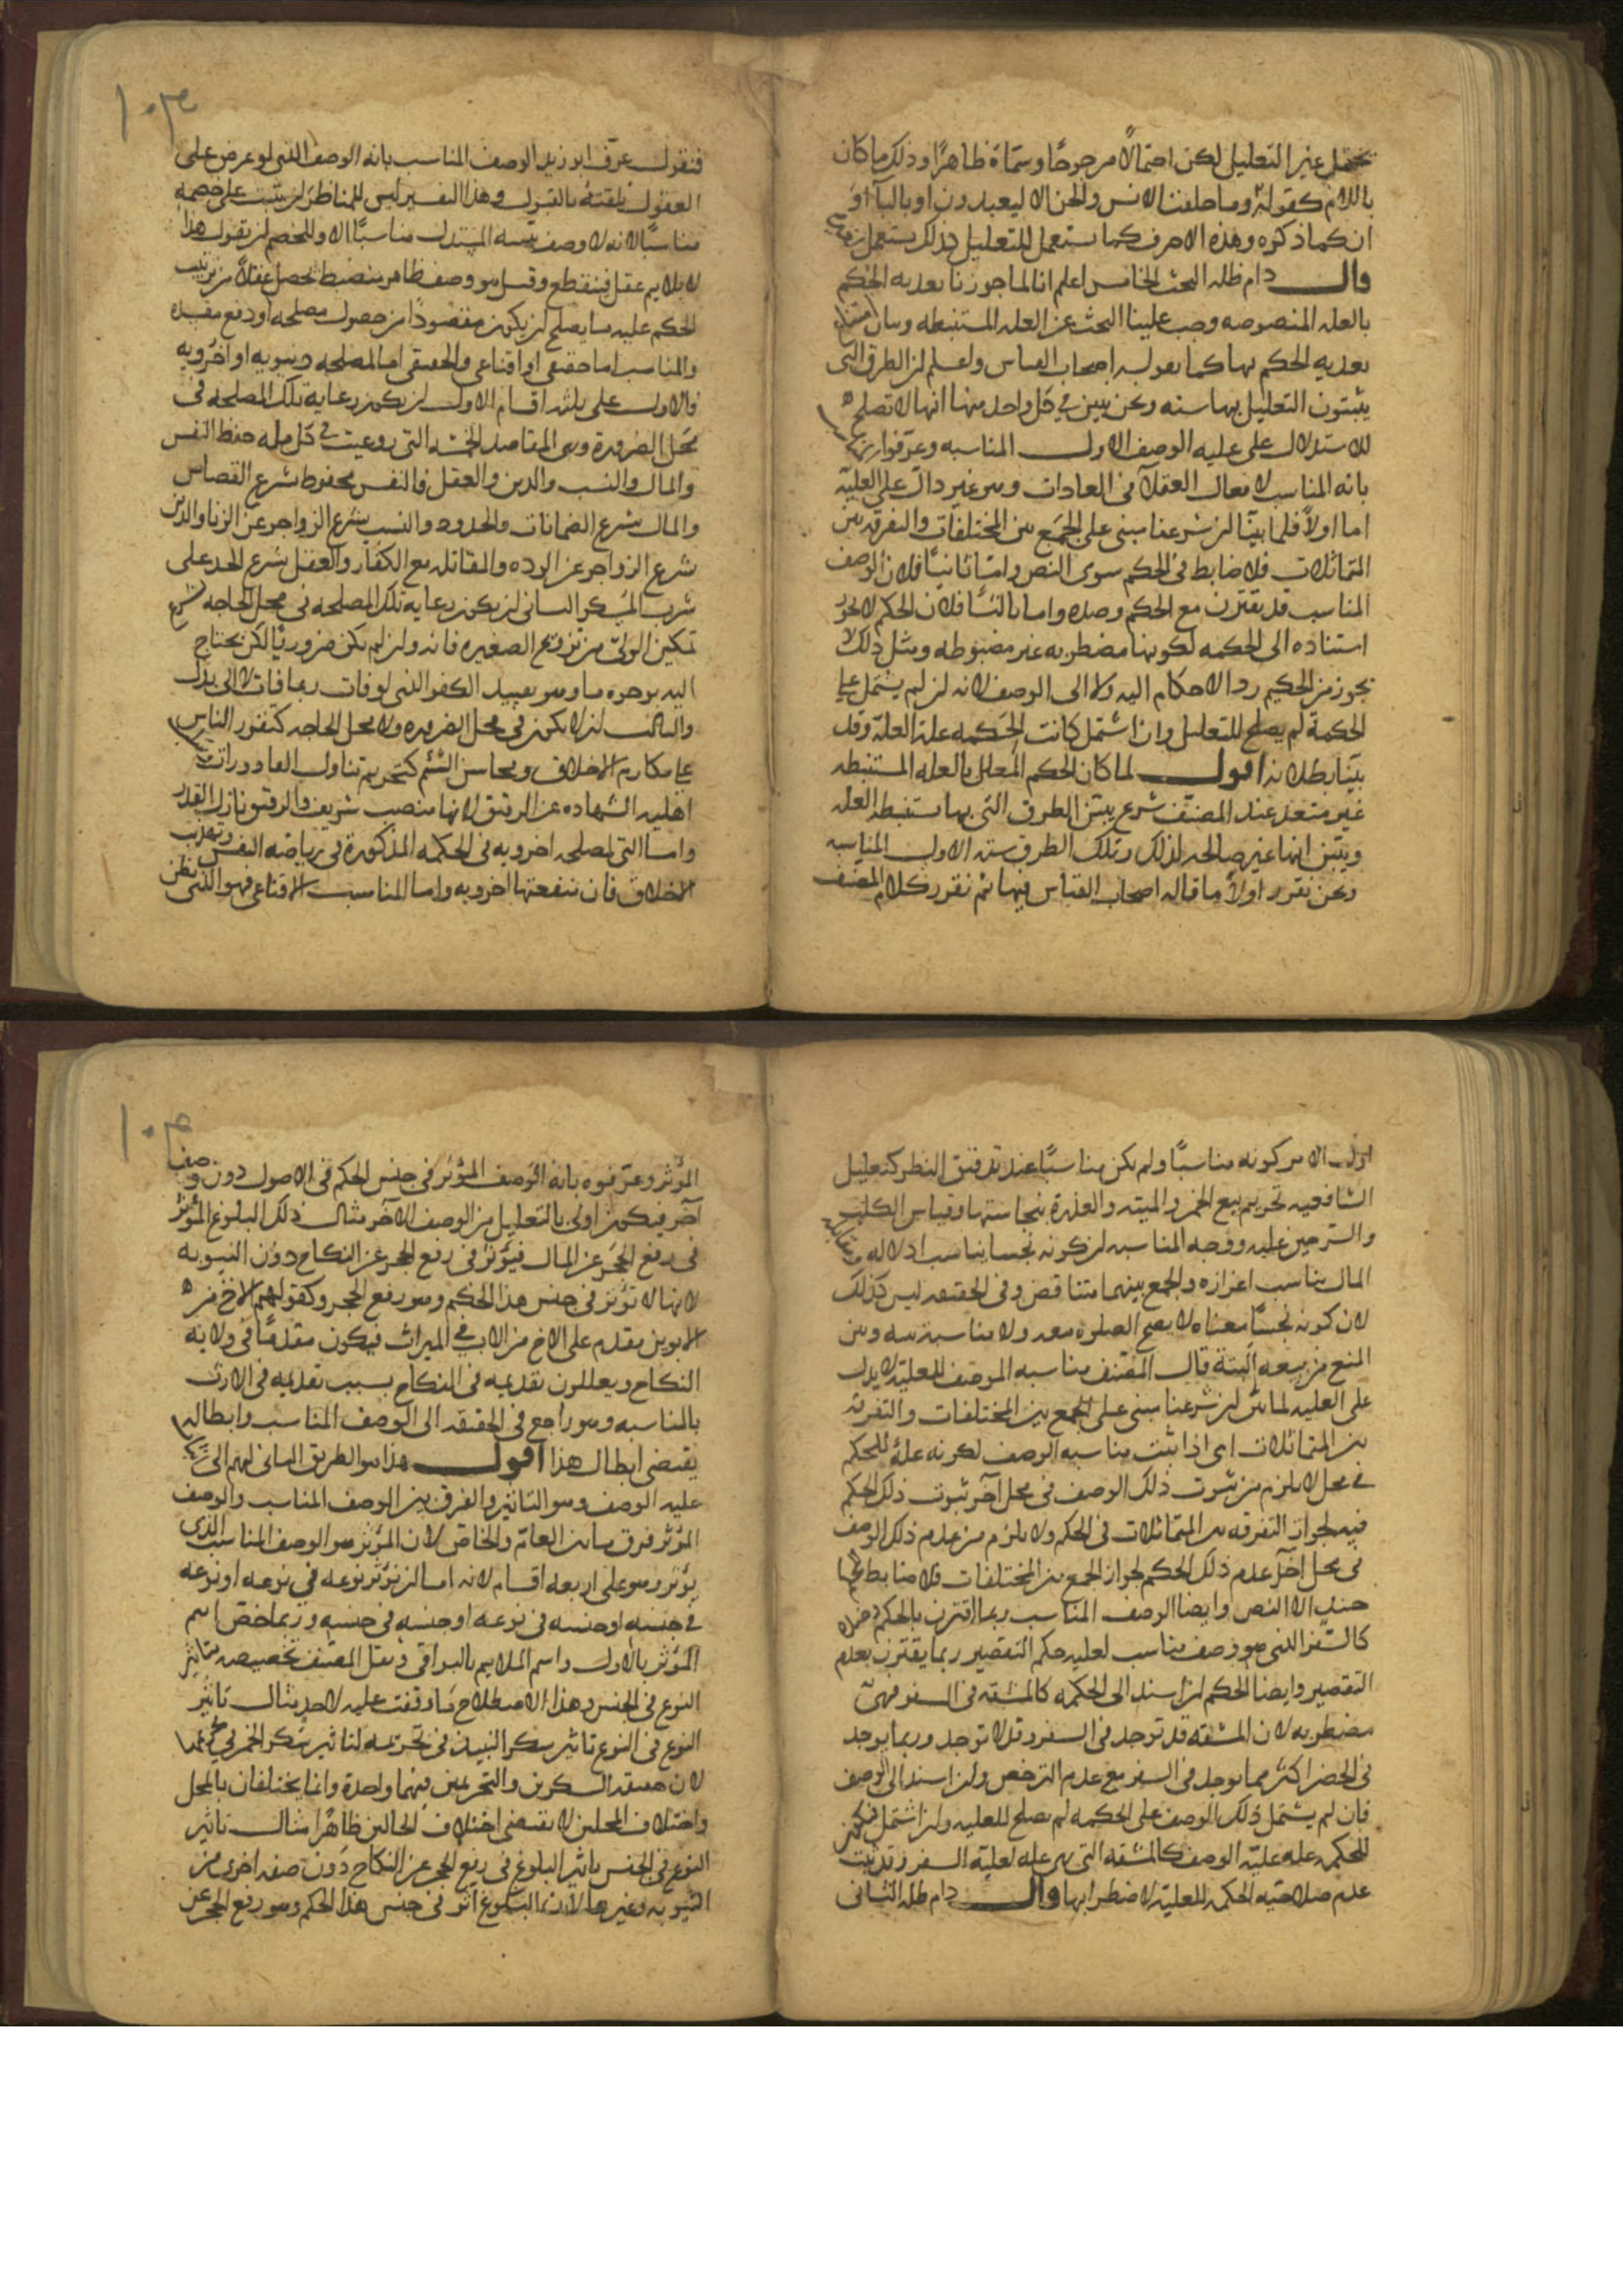 يحتمل غير التعليل لكن احتمالا مرجوحا وسماه ظاهرا وذلك ما كان
باللام كقوله وما خلقت الانس والجن الا ليعبدون او بالباء او
ان كما ذكره وهذه الاحرف كما تستعمل للتعليل كذلك تستعمل
قال دام ظله البحث الخامس اعلم انا لما جوزنا تعدية الحكم
بالعلة المنصوصة وجب علينا البحث عن العلة المستنبطة وبيان امتناع
تعدية الحكم بها كما يقوله اصحاب القياس واعلم ان الطرق التي
يثبتون التعليل بها ستة ونحن نبين في كل واحد منها انها لا تصلح
للاستدلال على علية الوصف الاول المناسبة وعرفوا
بانه المناسب لافعال العقلاء في العادات وهو غير دال على العلية
اما اولا فلما بينا ان شرعنا مبني على الجمع بين المختلفات والتفرقة بين
المتماثلات فلا ضابط في الحكم سوى النص واما ثانيا فلان الوصف
المناسب قد يقترن مع الحكم وضده واما ثالثا فلان الحكم لا يجوز
استناده الى الحكمة لكونها مضطربة غير مضبوطة ومثل ذلك لا
يجوز من الحكيم رد الاحكام اليه ولا الى الوصف لانه ان لم يشتمل على
الحكمة لم يصلح للتعليل وان اشتمل كانت الحكمة علة العلة وقد
بينا بطلانه اقول لما كان الحكم المعلل بالعلة المستنبطة
غير متعد عند المصنف شرع يبين الطرق التي بها تستنبط العلة
ويبين انها غير صالحة لذلك وتلك الطرق ستة الاول المناسبة
ونحن نقرر اولا ما قاله اصحاب القياس فيها ثم نقرر كلام المصنف
١٠٣
فنقول عرف ابو زيد الوصف المناسب بانه الوصف الذي لو عرض على
العقول تلقته بالقبول وهذا التفسير ليس للمناظر ان يثبت على خصمه
مناسبا لانه لا وصف يثبته المستدل مناسبا الا وللخصم ان يقول هذا
لا يلايم عقلي فينقطع وقيل هو وصف ظاهر منضبط يحصل عقلا من ترتيب
الحكم عليه ما يصلح ان يكون مقصودا من حصول مصلحة او دفع مفسدة
والمناسب اما حقيقي او اقناعي والحقيقي اما لمصلحة دنيوية او اخروية
فالاول على ثلثة اقسام الاول ان يكون رعاية تلك المصلحة في
محل الضرورة وهي المقاصد الخمسة التي روعيت في كل ملة حفظ النفس
والمال والنسب والدين والعقل فالنفس محفوظ بشرع القصاص
والمال بشرع الضمانات والحدود والنسب بشرع الزواجر عن الزنا والدين
بشرع الزواجر عن الردة والمقاتلة مع الكفار والعقل بشرع الحد على
شرب المسكر الثاني ان يكون رعاية تلك المصلحة في محل الحاجة
تمكين الولي من تزويج الصغيرة فانه وان لم يكن ضروريا لكن يحتاج
اليه بوجوه ما وهو تقييد الكفو الذي لو فات ربما فات لا الى بدل
والثالث ان لا يكون في محل الضرورة ولا محل الحاجة كتقرير الناس
على مكارم الاخلاق ومحاسن الشيم كتحريم تناول القاذورات
اهلية الشهادة عن الرقيق لانها منصب شريف والرقيق نازل القدر
واما التي لمصلحة اخروية في الحكمة المذكورة في رياضة النفس وتهذيب
الاخلاق فان منفعتها اخروية واما المناسب الاقناعي فهو الذي يظن
اول الامر كونه مناسبا ولم يكن مناسبا عند تدقيق النظر كتعليل
الشافعية تحريم بيع الخمر والميتة والعذرة بنجاستها وقياس الكلب
والسرجين عليه ووجه المناسبة ان كونه نجسا يناسب اذلاله
المال يناسب اعزازه والجمع بينهما متناقض وفي الحقيقة ليس كذلك
لان كونه نجسا معناه لا يصح الصلوة معه ولا مناسبة بينه وبين
المنع من بيعه البتة قال المصنف مناسبة الوصف للعلية لا يدل
على العلية لما بين ان شرعنا مبني على الجمع بين المختلفات والتفرقة
بين المتماثلات اي اذا ثبت مناسبة الوصف لكونه علة للحكم
في محل لا يلزم من ثبوت ذلك الوصف في محل آخر ثبوت ذلك الحكم
فيه لجواز التفرقة بين المتماثلات في الحكم ولا يلزم من عدم ذلك الوصف
في محل آخر عدم ذلك الحكم لجواز الجمع بين المختلفات فلا ضابط
حينئذ الا النص وايضا الوصف المناسب ربما اقترن بالحكم وضده
كالسفر الذي هو وصف مناسب لعلية حكم التقصير ربما يقترن بعدم
التقصير وايضا الحكم ان اسند الى الحكمة كالمشقة في السفر فهي
مضطربة لان المشقة قد توجد في السفر وقد لا توجد وربما يوجد
في الحضر اكثر مما يوجد في السفر مع عدم الترخص وان اسند الى الوصف
فان لم يشتمل ذلك الوصف على الحكمة لم يصلح للعلية وان اشتمل فيكون
للحكمة علة علية الوصف كالمشقة التي هي علة لعلية السفر وقد ثبت
عدم صلاحية الحكمة للعلية لاضطرابها قال دام ظله الثاني
١٠٤
المؤثر وعرفوه بانه الوصف المؤثر في جنس الحكم في الاصول دون وصف
آخر فيكون اولى بالتعليل من الوصف الآخر مثال ذلك البلوغ المؤثر
في رفع الحجر عن المال فيؤثر في رفع الحجر عن النكاح دون الثيوبة
لانها لا تؤثر في جنس هذا الحكم وهو رفع الحجر وكقولهم الاخ من
الابوين مقدم على الاخ من الاب في الميراث فيكون مقدما في ولاية
النكاح ويعللون تقديمه في النكاح بسبب تقديمه في الارث
بالمناسبة وهو راجع في الحقيقة الى الوصف المناسب وابطاله
يقتضي ابطال هذا اقول هذا هو الطريق الثاني لهم الى
علية الوصف وهو التاثير والفرق بين الوصف المناسب والوصف
المؤثر فرق ما بين العام والخاص لان المؤثر هو الوصف المناسب الذي
يؤثر وهو على اربعة اقسام لانه اما ان يؤثر نوعه في نوعه او نوعه
في جنسه او جنسه في نوعه او جنسه في جنسه وربما خص اسم
المؤثر بالاول واسم الملايم بالبواقي ونقل المصنف تخصيصه بتاثير
النوع في الجنس وهذا الاصطلاح ما وقفت عليه لاحد مثال تاثير
النوع في النوع تاثير سكر النبيذ في تحريمه لتاثير سكر الخمر في
لان حقيقة السكرين والتحريمين فيهما واحدة وانما يختلفان بالمحل
واختلاف المحلين لا يقتضي اختلاف الحالين ظاهرا مثال تاثير
النوع في الجنس تاثير البلوغ في رفع الحجر عن النكاح دون صفة اخرى من
الثيوبة وغيرها لان البلوغ اثر في جنس هذا الحكم وهو رفع الحجر عن